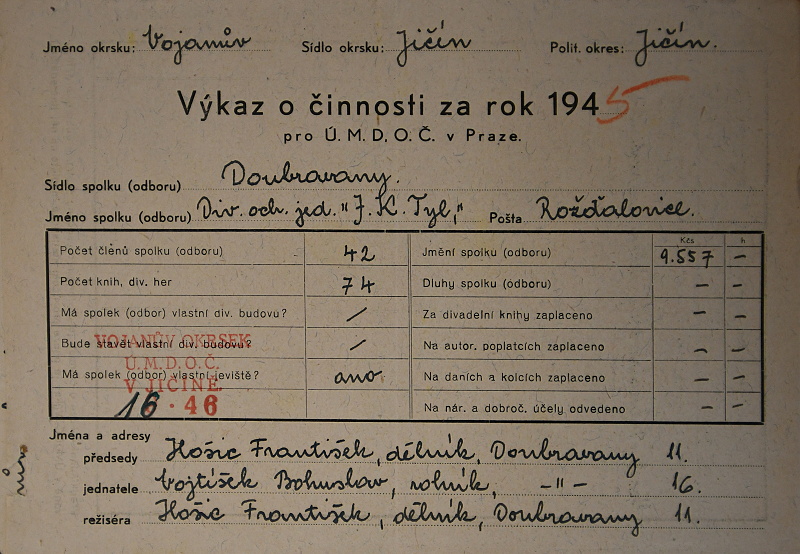 Jméno okrsku: Vojanův Sídlo okrsku: Jičín Polit. okres: Jičín.
Výkaz o činnosti za rok 1945
pro Ú. M. D. O. Č. v Praze.
Sídlo spolku (odboru) Doubravany.
Jméno spolku (odboru) Div. och. jed. "J. K. Tyl," Pošta Rožďalovice.
Kčs h
Počet členů spolku (odboru) 42 Jmění spolku (odboru) 9.557 —
Počet knih, div. her 74 Dluhy spolku (odboru) — —
Má spolek (odbor) vlastní div. budovu? / Za divadelní knihy zaplaceno — —
VOJANŮV OKRSEK
Bude stavět vlastní div. budovu? / Na autor. poplatcích zaplaceno — —
Ú.M.D.O.Č.
Má spolek (odbor) vlastní jeviště? ano Na daních a kolcích zaplaceno — —
V JIČÍNĚ
16 · 46 Na nár. a dobroč. účely odvedeno — —
Jména a adresy
předsedy Hošic František, dělník, Doubravany 11.
jednatele Vojtíšek Bohuslav, rolník, —"— 16.
režiséra Hošic František, dělník, Doubravany 11.